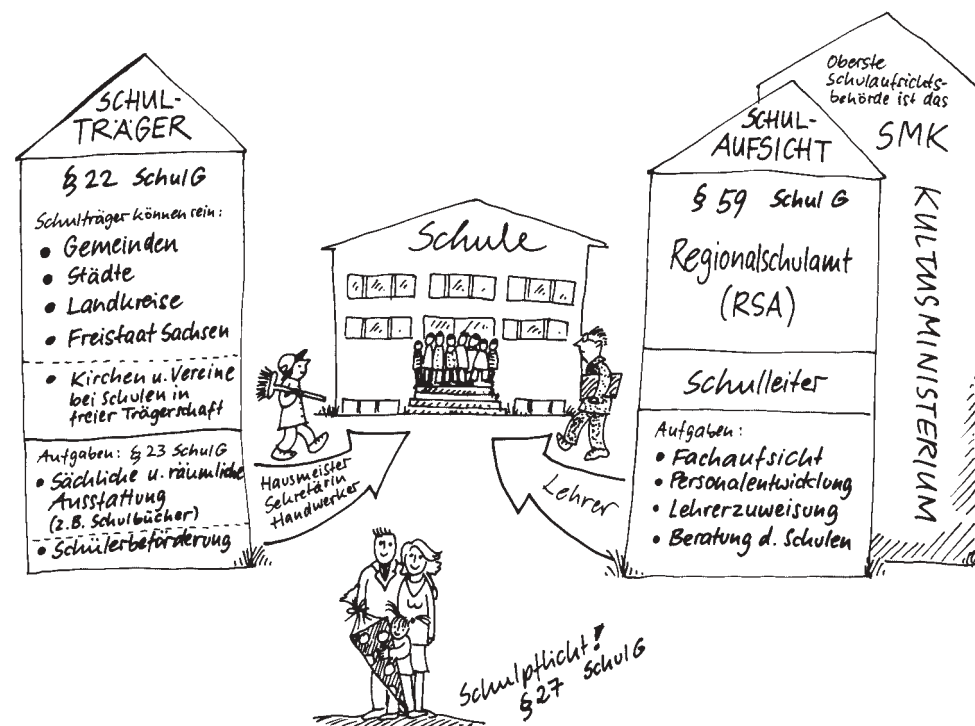 SCHUL-
TRÄGER
§ 22 SchulG
Schulträger können sein:
• Gemeinden
• Städte
• Landkreise
• Freistaat Sachsen
• Kirchen u. Vereine
bei Schulen in
freier Trägerschaft
Aufgaben: § 23 SchulG
• Sächliche u. räumliche
Ausstattung
(z.B. Schulbücher)
• Schülerbeförderung
Hausmeister
Sekretärin
Handwerker
Schule
Lehrer
Schulpflicht!
§ 27 SchulG
SCHUL-
AUFSICHT
§ 59 SchulG
Regionalschulamt
(RSA)
Schulleiter
Aufgaben:
• Fachaufsicht
• Personalentwicklung
• Lehrerzuweisung
• Beratung d. Schulen
Oberste
Schulaufsichts-
behörde ist das
SMK
KULTUSMINISTERIUM